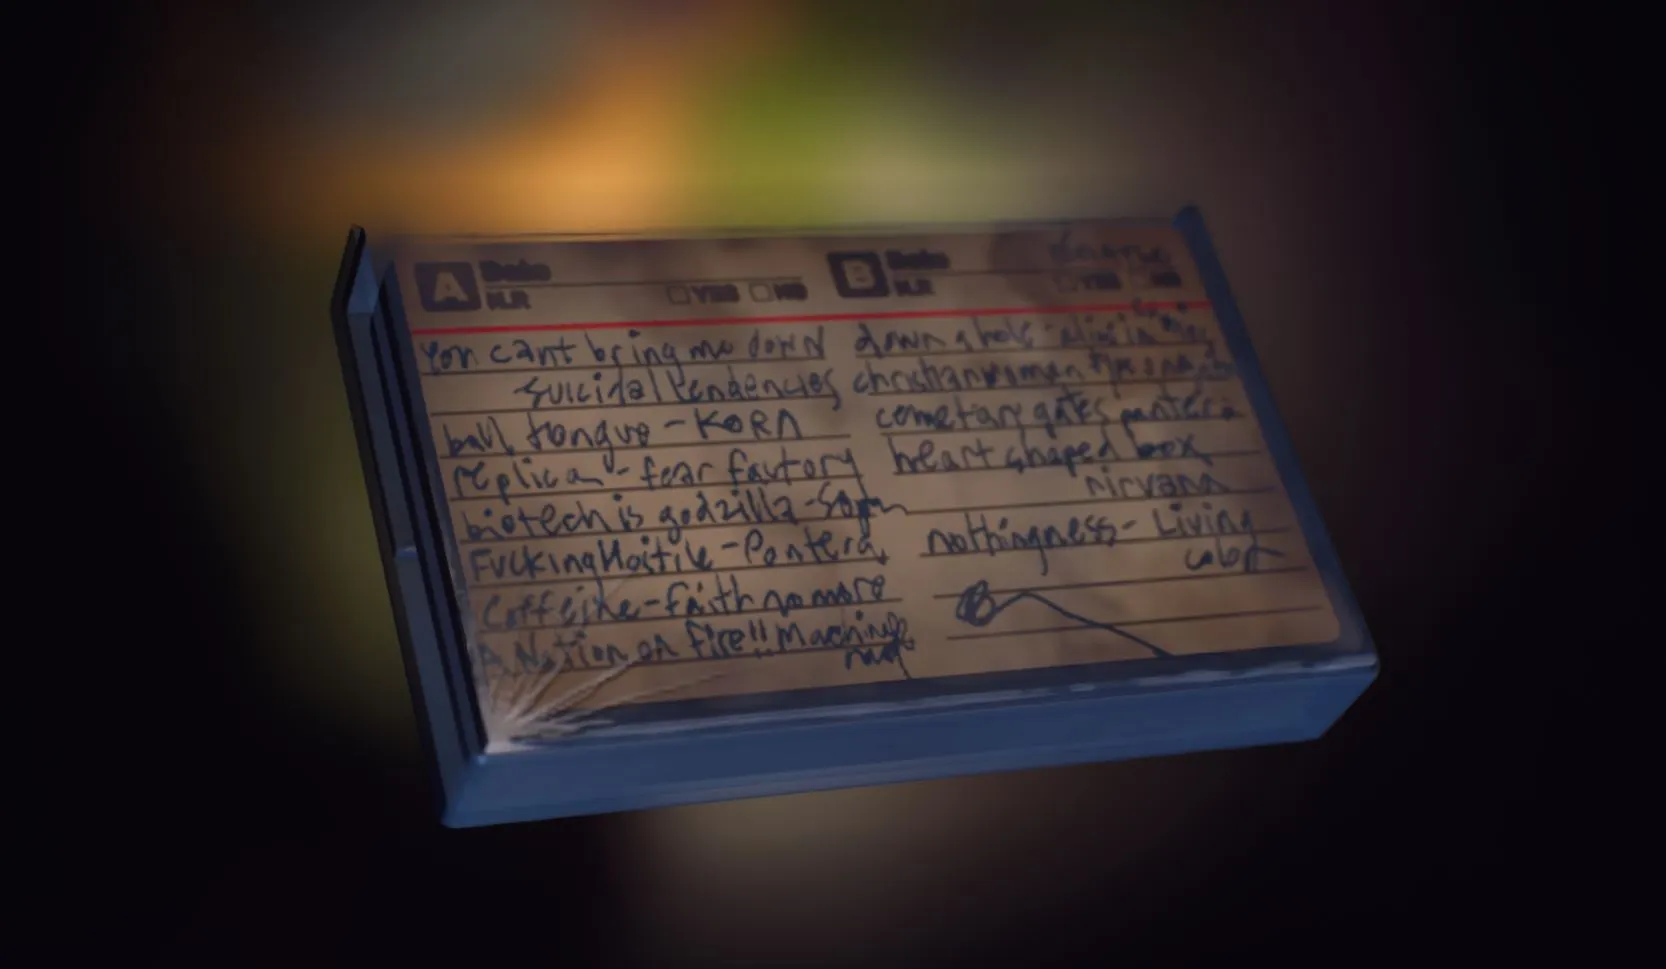 A Date
N.R YES NO
B Date
N.R YES NO
You cant bring me down
suicidal tendencies
ball tongue - KORN
replica - fear factory
biotech is godzilla -
Fucking Hostile - Pantera
Caffeine - faith no more
A Nation on fire!! Machine
down a hole - alice in
christian woman type o
cemetary gates pantera
heart shaped box
nirvana
nothingness - Living
color